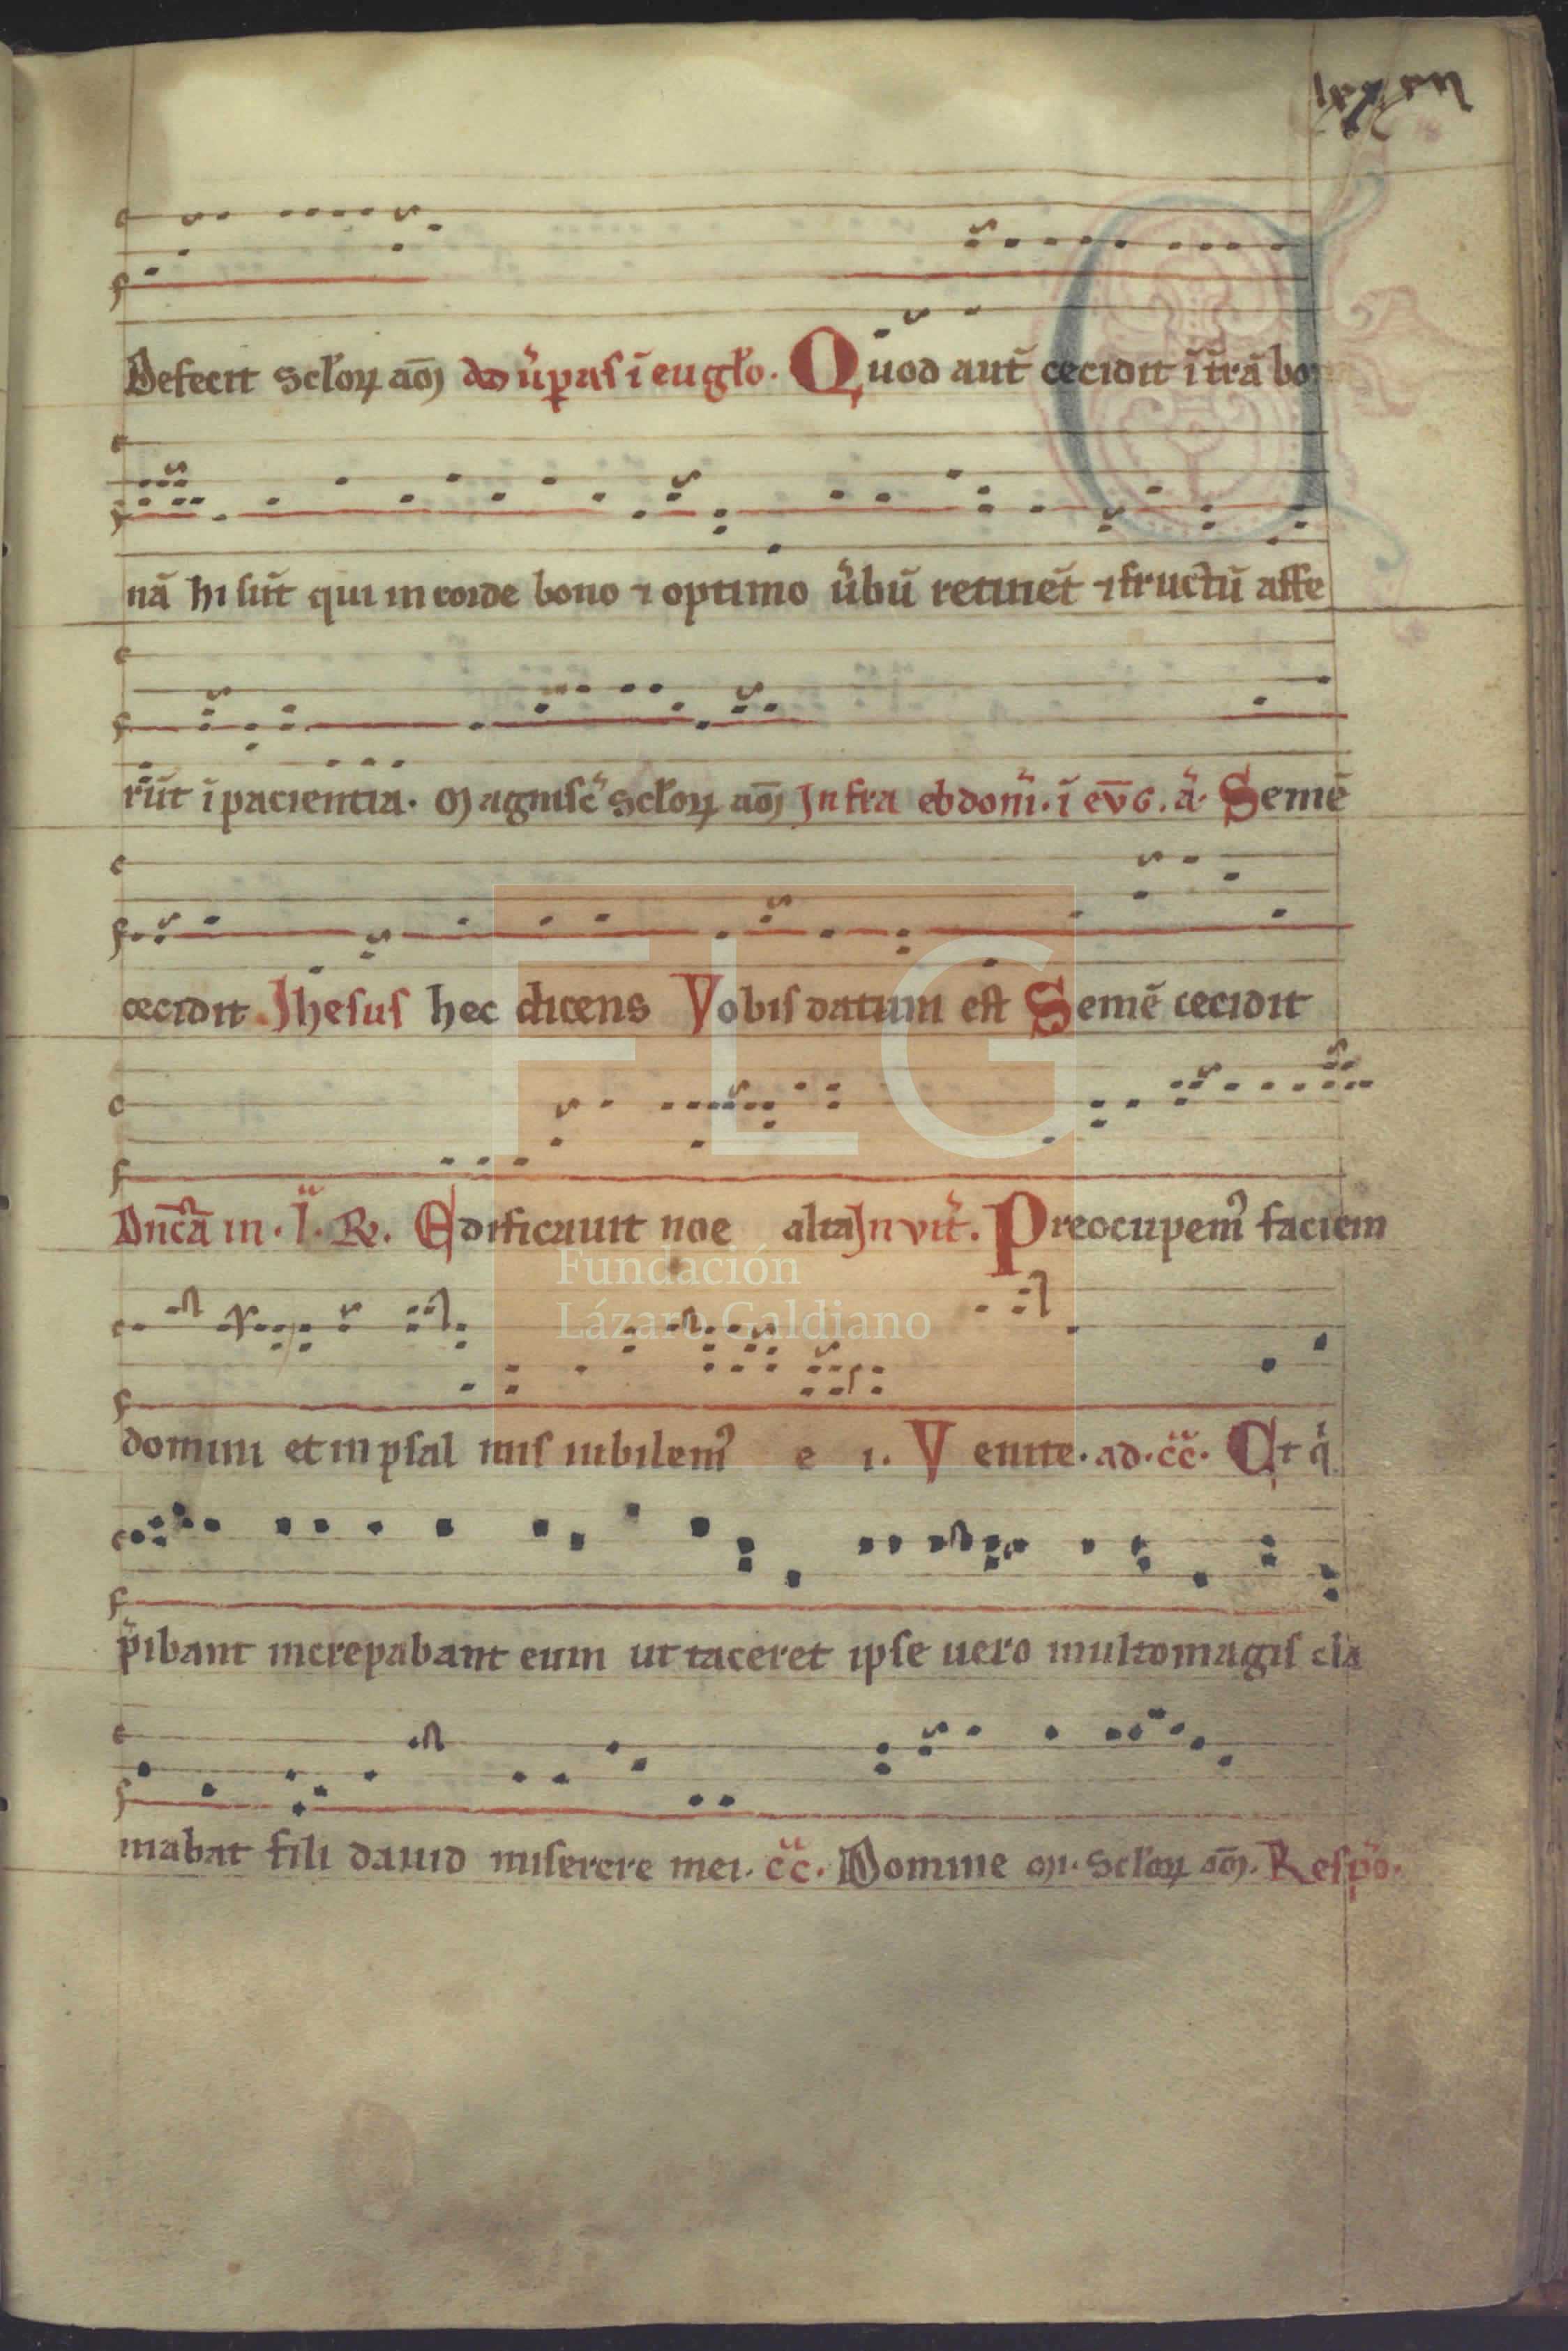 Defecit sclorꝝ am̄ ad ūpas ī eu glo. Quod aut̄ cecidit ī tr̄a bo
nā hi sūt qui in corde bono ⁊ optimo ūbū retinēt ⁊ fructū affe
rūt ī paciencia. Magnific̄ sclorꝝ am̄ Infra ebdom̄. ī ev̄g. ā. Semē
cecidit Jhesus hec dicens Vobis datum est Semē cecidit
Dn̄ca in. l. R. Edificauit noe alta Invit̄. Preocupem᷒ faciem
domini et in psal mis iubilem᷒ e i. V enite. ad. cc. Et q
p̄ibant increpabant eum ut taceret ipse uero multo magis cla
mabat fili dauid miserere mei. cc. Domine m. sclorꝝ am̄. Respo.
FLG
Fundación
Lázaro Galdiano